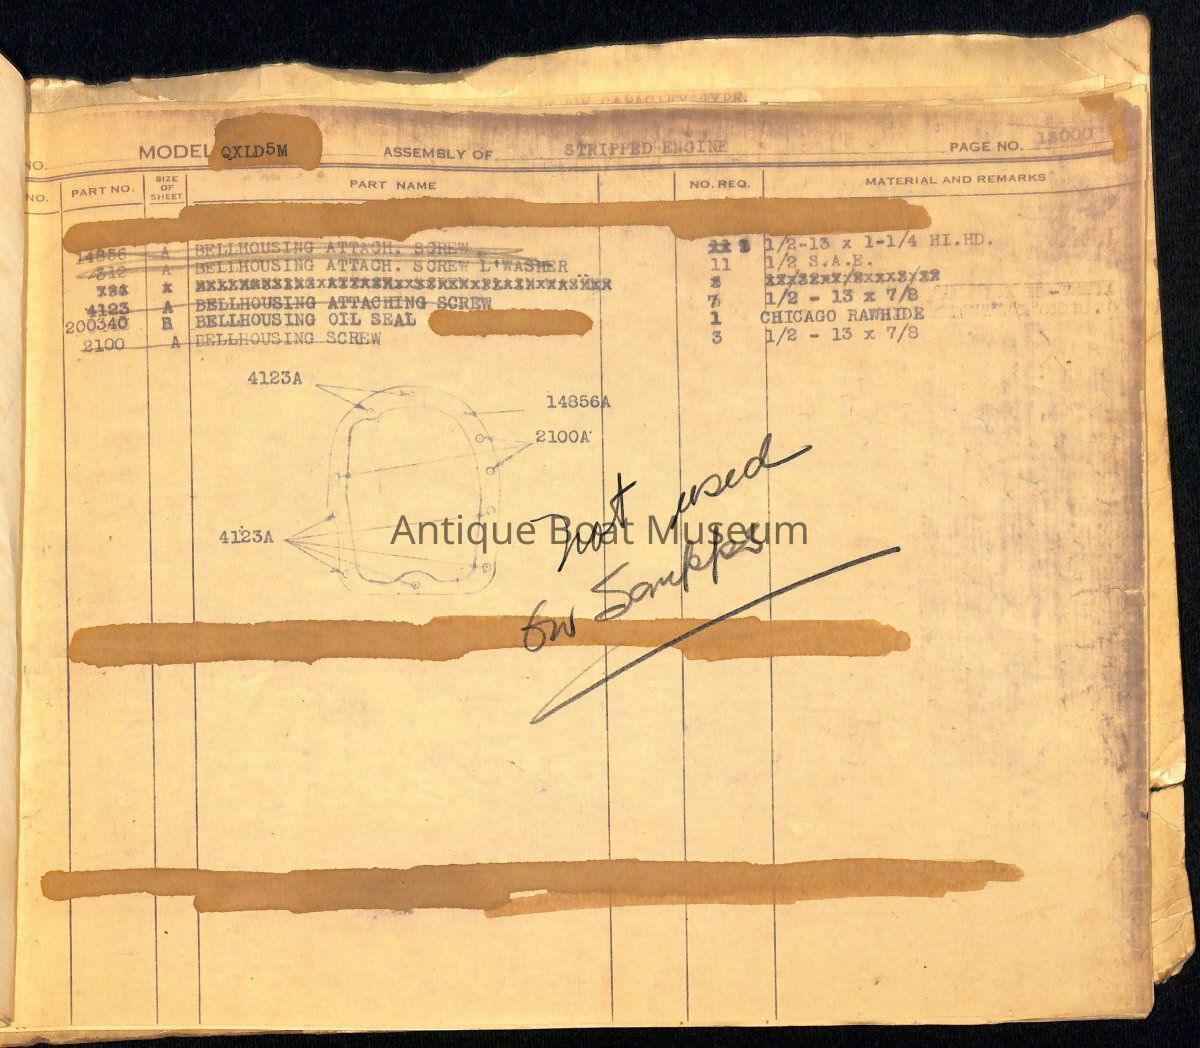 NO. MODEL QXLD5M ASSEMBLY OF STRIPPED ENGINE PAGE NO. 12000
NO. PART NO. SIZE OF SHEET PART NAME NO. REQ. MATERIAL AND REMARKS
14856 A BELLHOUSING ATTACH. SCREW 1 1/2-13 x 1-1/4 HI.HD.
4312 A BELLHOUSING ATTACH. SCREW L'WASHER 11 1/2 S.A.E.
4123 A BELLHOUSING ATTACHING SCREW 7 1/2 - 13 x 7/8
200340 B BELLHOUSING OIL SEAL 1 CHICAGO RAWHIDE
2100 A BELLHOUSING SCREW 3 1/2 - 13 x 7/8
4123A
14856A
2100A
4123A
Not used
for
Antique Boat Museum